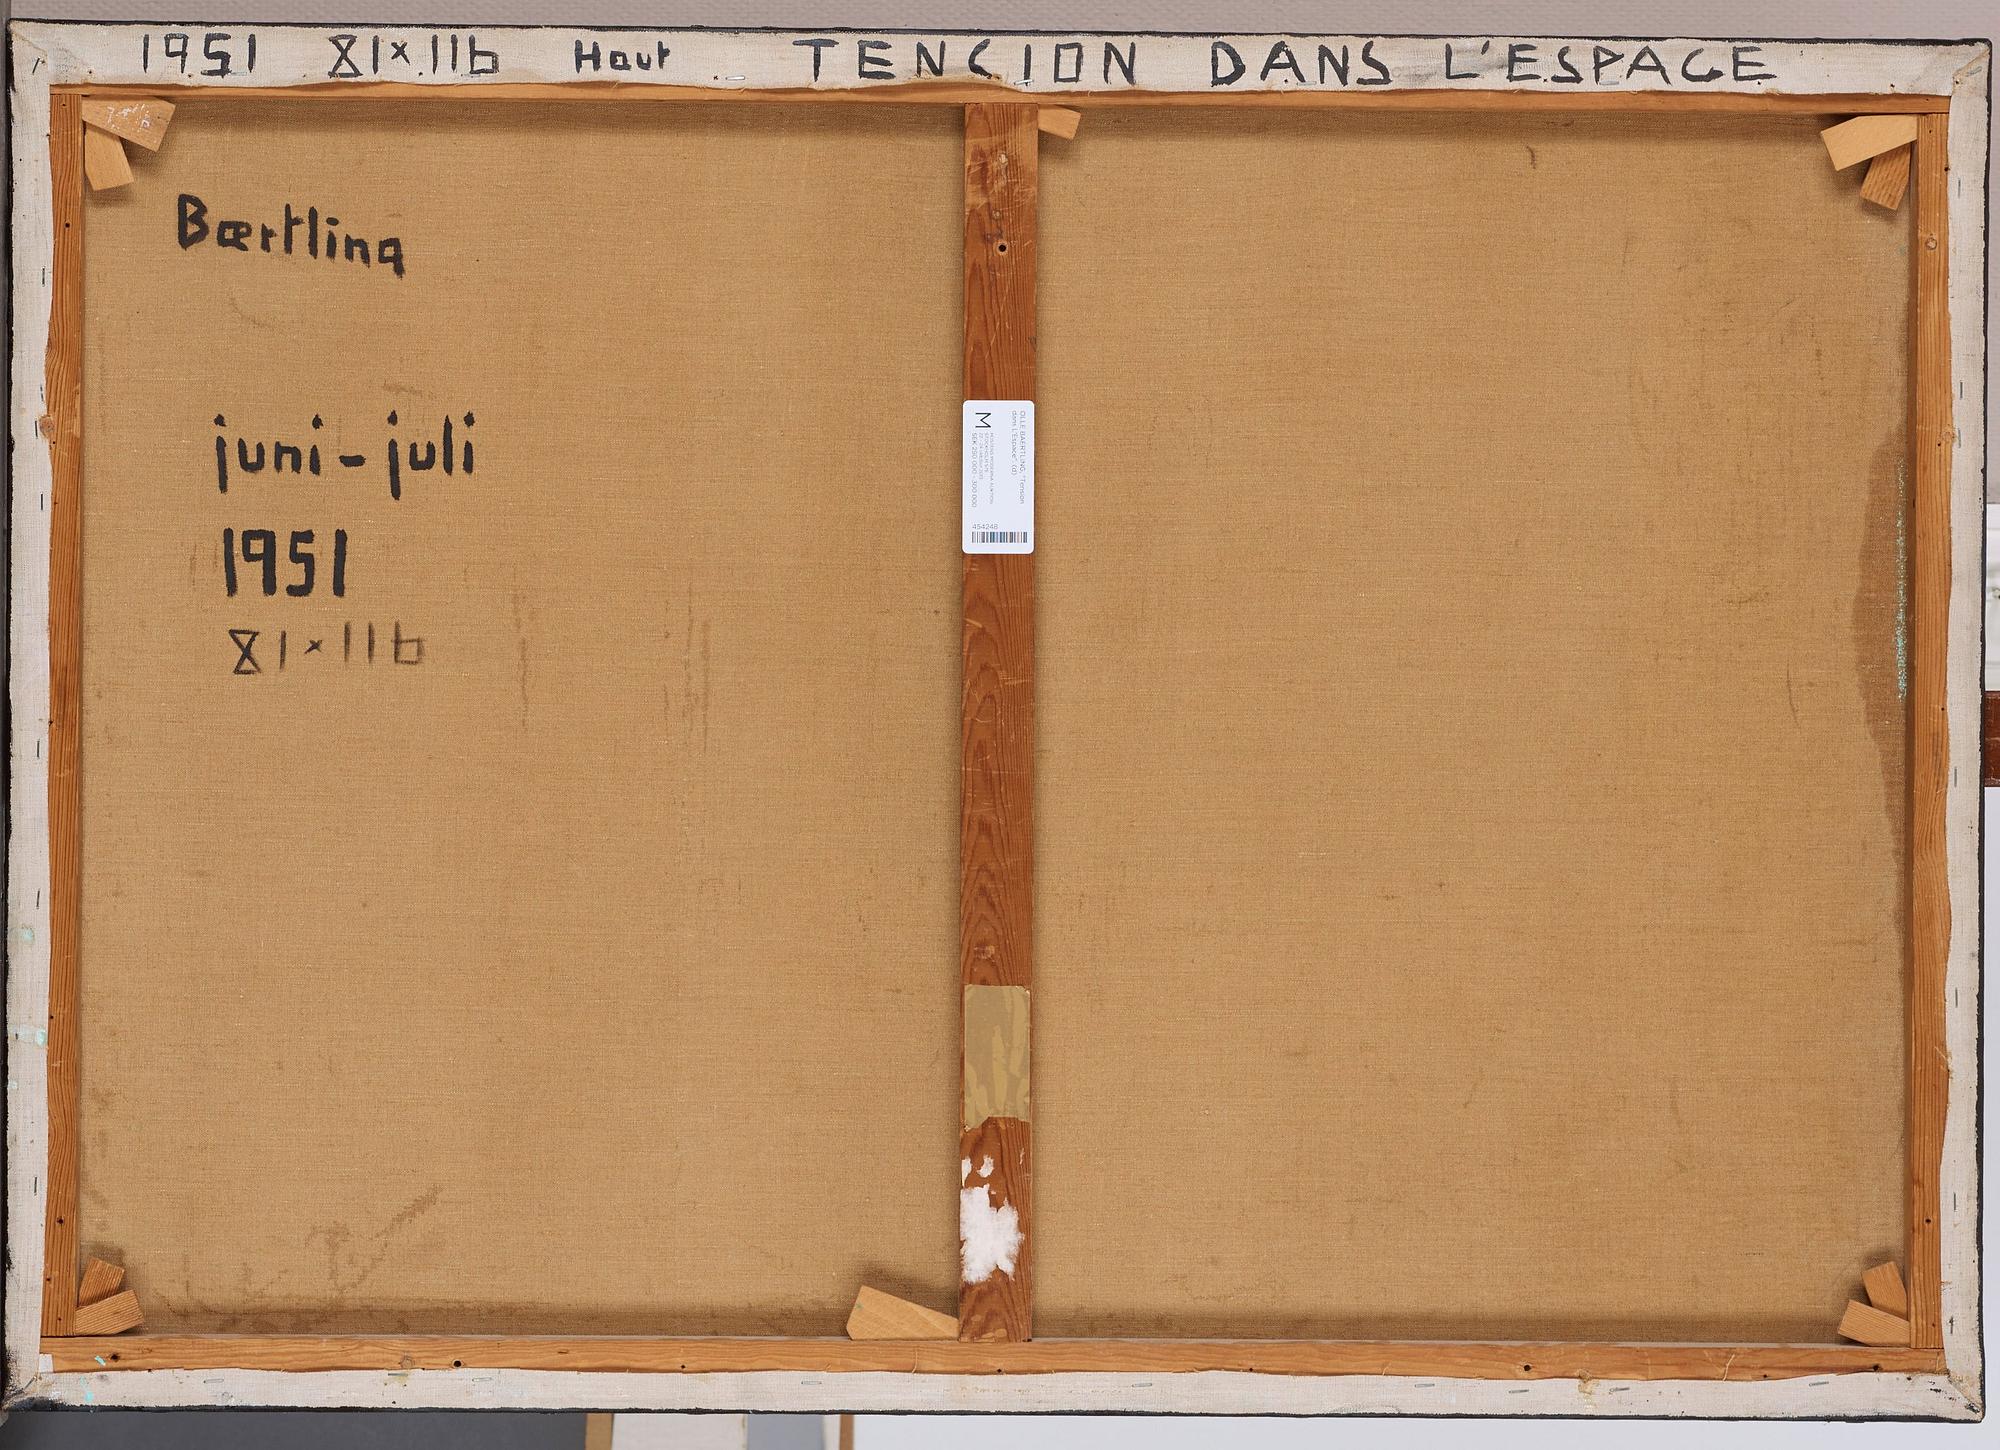 1951 81×116 Haut TENCION DANS L'ESPACE
Bærtling
juni-juli
1951
81×116
OLLE BAERTLING, "Tension
dans L'Espace". (d)
M
SEK 250 000 - 300 000
454248